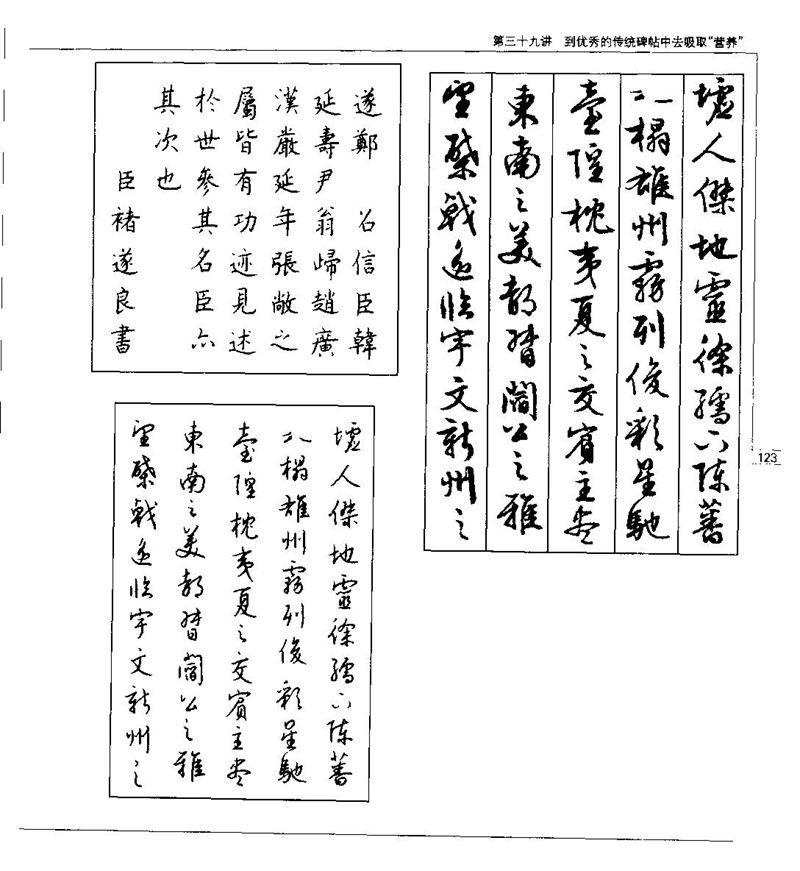 第三十九讲 到优秀的传统碑帖中去吸取“营养”
墟人傑地靈徐孺下陳蕃
之榻雄州霧列俊彩星馳
臺隍枕夷夏之交賓主盡
東南之美都督閻公之雅
望棨戟遥臨宇文新州之
遂鄭 召信臣韓
延壽尹翁歸趙廣
漢嚴延年張敞之
屬皆有功迹見述
於世參其名臣亦
其次也
臣褚遂良書
墟人傑地靈徐孺下陳蕃
之榻雄州霧列俊彩星馳
臺隍枕夷夏之交賓主盡
東南之美都督閻公之雅
望棨戟遥臨宇文新州之
123